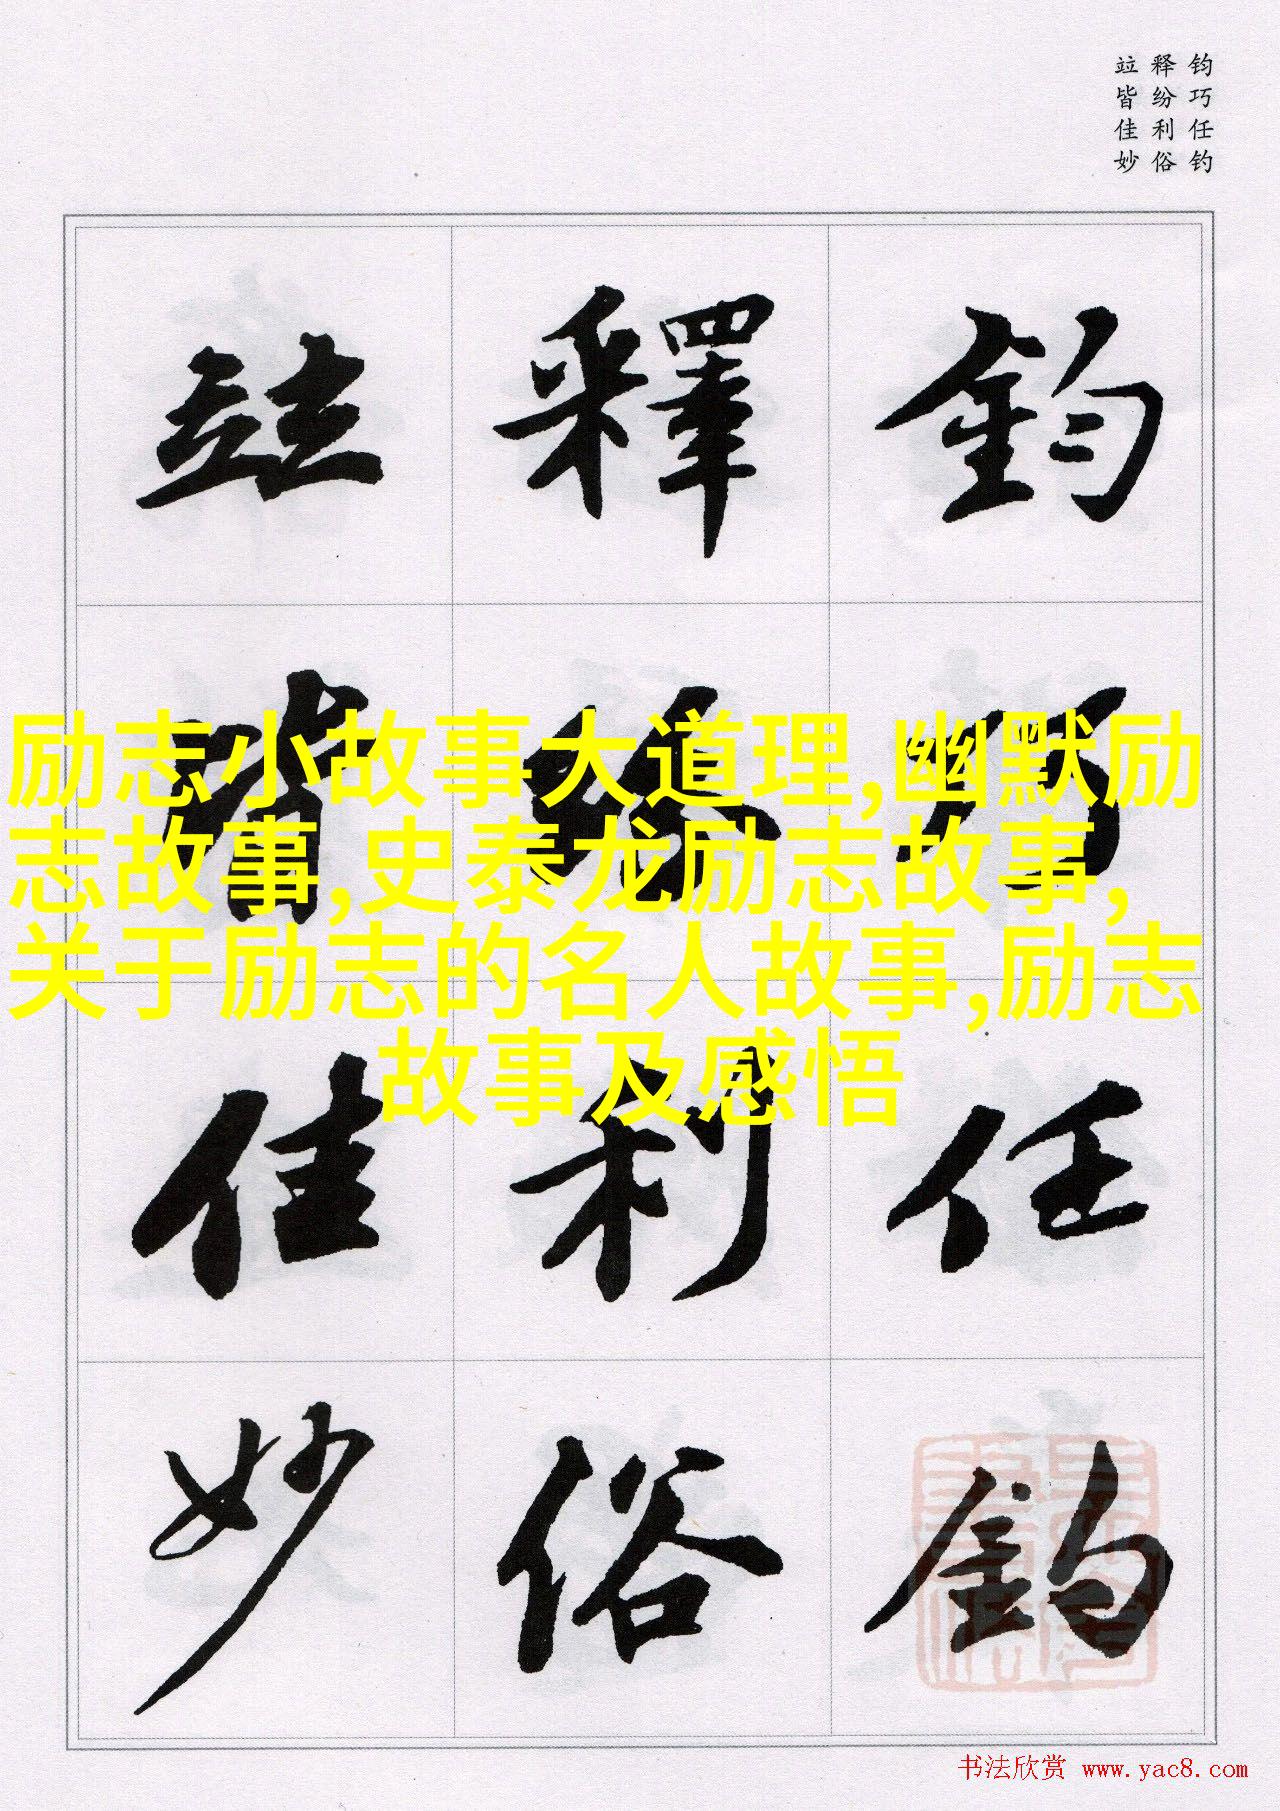 钧巧任钓
释纷利俗
竝皆佳妙
鈞巧任釣
釋紛利俗
竝皆佳妙
励志小故事大道理,幽默励
志故事,史泰龙励志故事,
关于励志的名人故事,励志
故事及感悟
书法欣赏 www.yac8.com